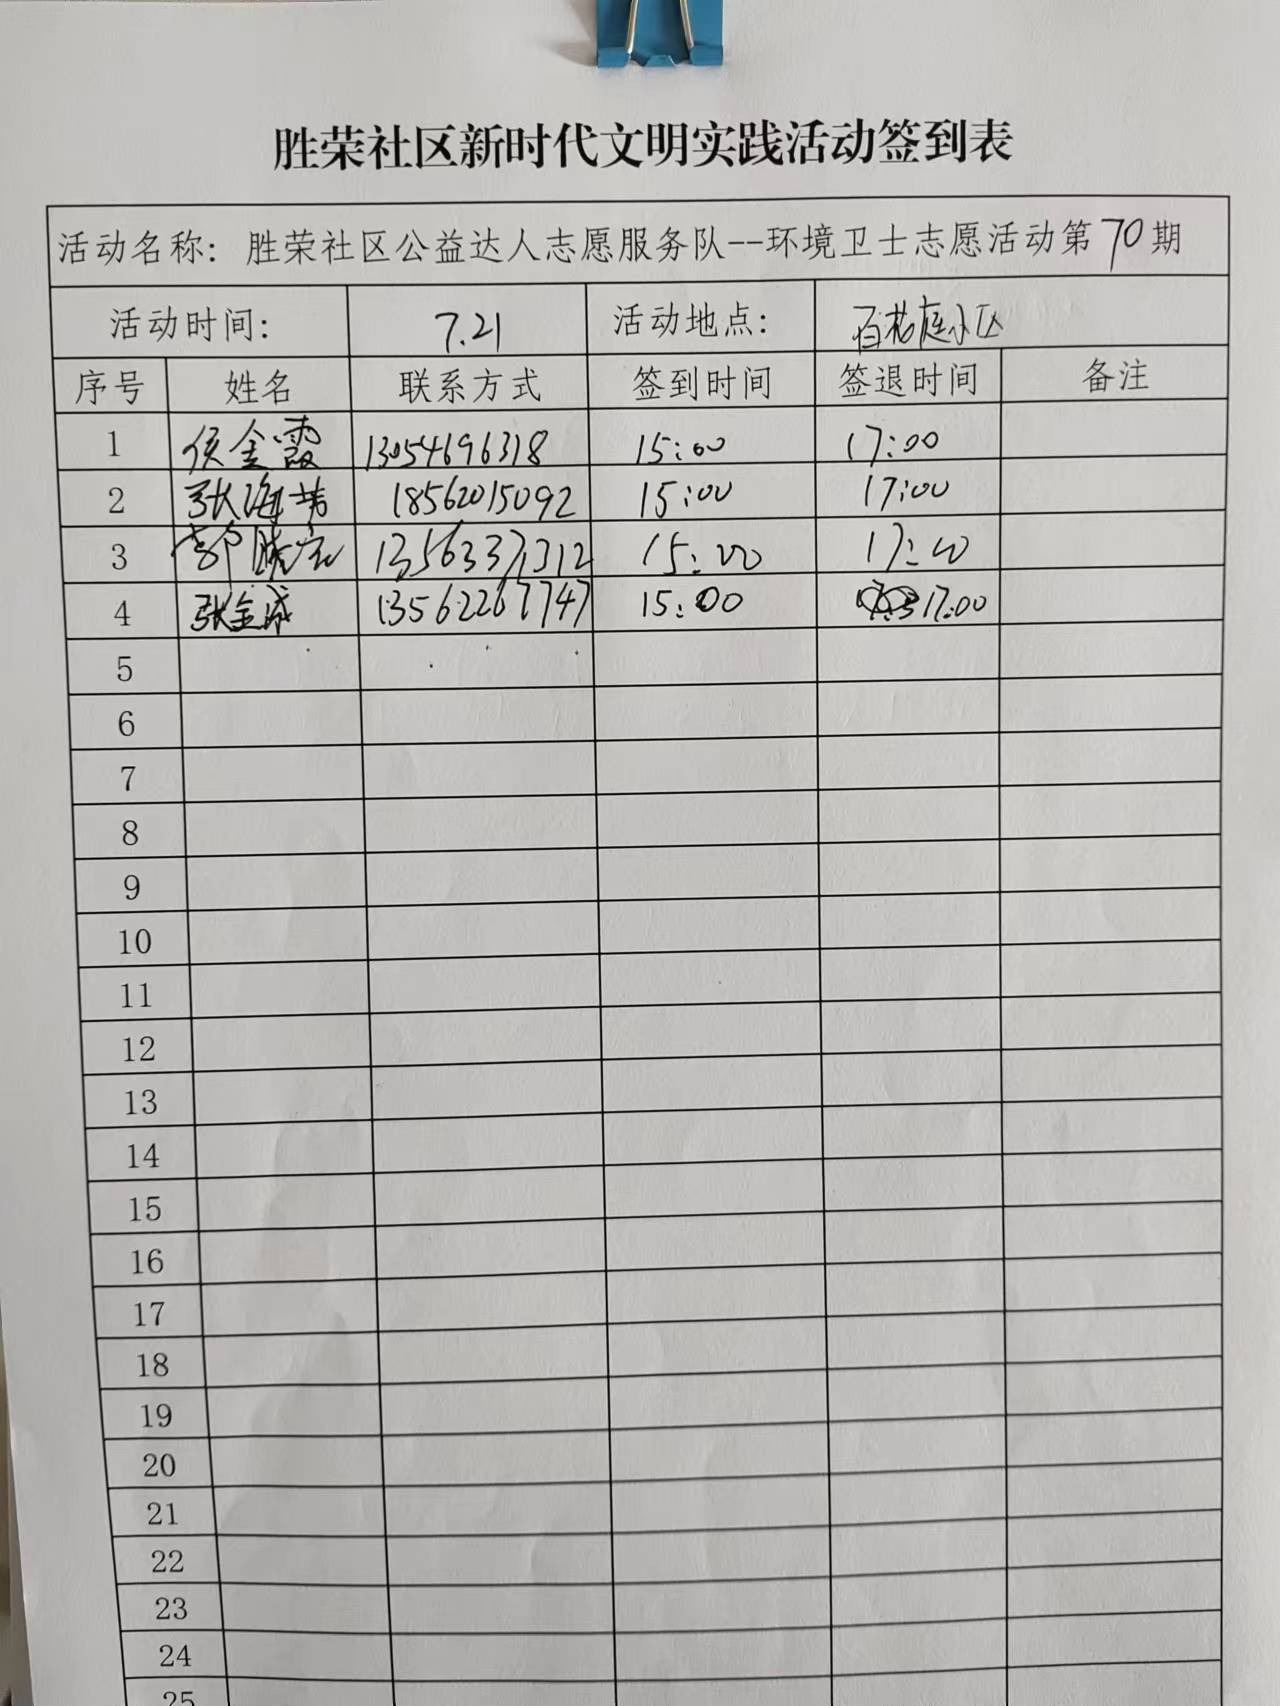 胜荣社区新时代文明实践活动签到表
活动名称：胜荣社区公益达人志愿服务队--环境卫士志愿活动第70期
活动时间: 7.21 活动地点: 百花庭小区
序号 姓名 联系方式 签到时间 签退时间 备注
1 侯金霞 13054696318 15:00 17:00
2 张海 18562015092 15:00 17:00
3 郭晓 13563371312 15:00 17:00
4 张金 13562267747 15:00 17:00
5
6
7
8
9
10
11
12
13
14
15
16
17
18
19
20
21
22
23
24
25